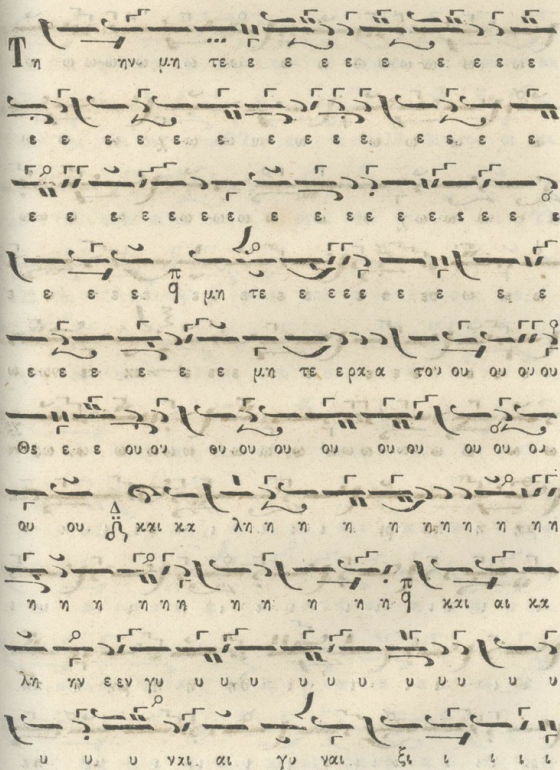 Τη ην μη τε ε ε ε ε ε ε ε ε ε
ε ε ε ε ε ε ε ε ε ε ε ε ε ε
ε ε ε ε ε ε ε ε ε ε ε ε ε ε ε
ε ε ε π q μη τε ε ε ε ε ε ε ε ε
ε ε ε ε ε ε μη τε ε ρκα α του ου ου ου ου
Θε ε ε ε ου ου θυ ου ου ου ου ου ου ου ου
ου ου Δ και κα λη η η η η η η η η η η η
η η η η η η η η η η η π q και αι κα
λη ην ε εν γυ υ υ υ υ υ υ υ υ υ υ υ
υ υ υ ναι αι γυ ναι ξι ι ι ι ι